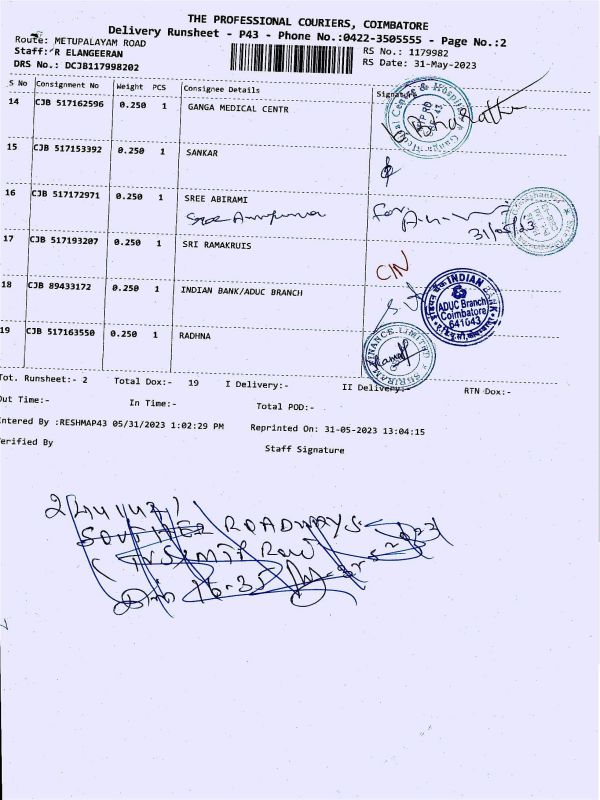 THE PROFESSIONAL COURIERS, COIMBATORE
Delivery Runsheet - P43 - Phone No.:0422-3505555 - Page No.:2
Route: METUPALAYAM ROAD
RS No.: 1179982
Staff: R ELANGEERAN
RS Date: 31-May-2023
DRS No.: DCJB117998202
S No Consignment No Weight PCS Consignee Details Signature
14 CJB 517162596 0.250 1 GANGA MEDICAL CENTR
Bharathi
15 CJB 517153392 0.250 1 SANKAR
16 CJB 517172971 0.250 1 SREE ABIRAMI
Sree
for
31/05/23
17 CJB 517193207 0.250 1 SRI RAMAKRUIS
CIN
18 CJB 89433172 0.250 1 INDIAN BANK/ADUC BRANCH
INDIAN BANK
ADUC Branch
Coimbatore
641043
19 CJB 517163550 0.250 1 RADHNA
SHRIRAM FINANCE LIMITED
Tot. Runsheet:- 2 Total Dox:- 19 I Delivery:- II Delivery:- RTN Dox:-
Out Time:- In Time:- Total POD:-
Entered By :RESHMAP43 05/31/2023 1:02:29 PM Reprinted On: 31-05-2023 13:04:15
Verified By Staff Signature
ROADWAYS